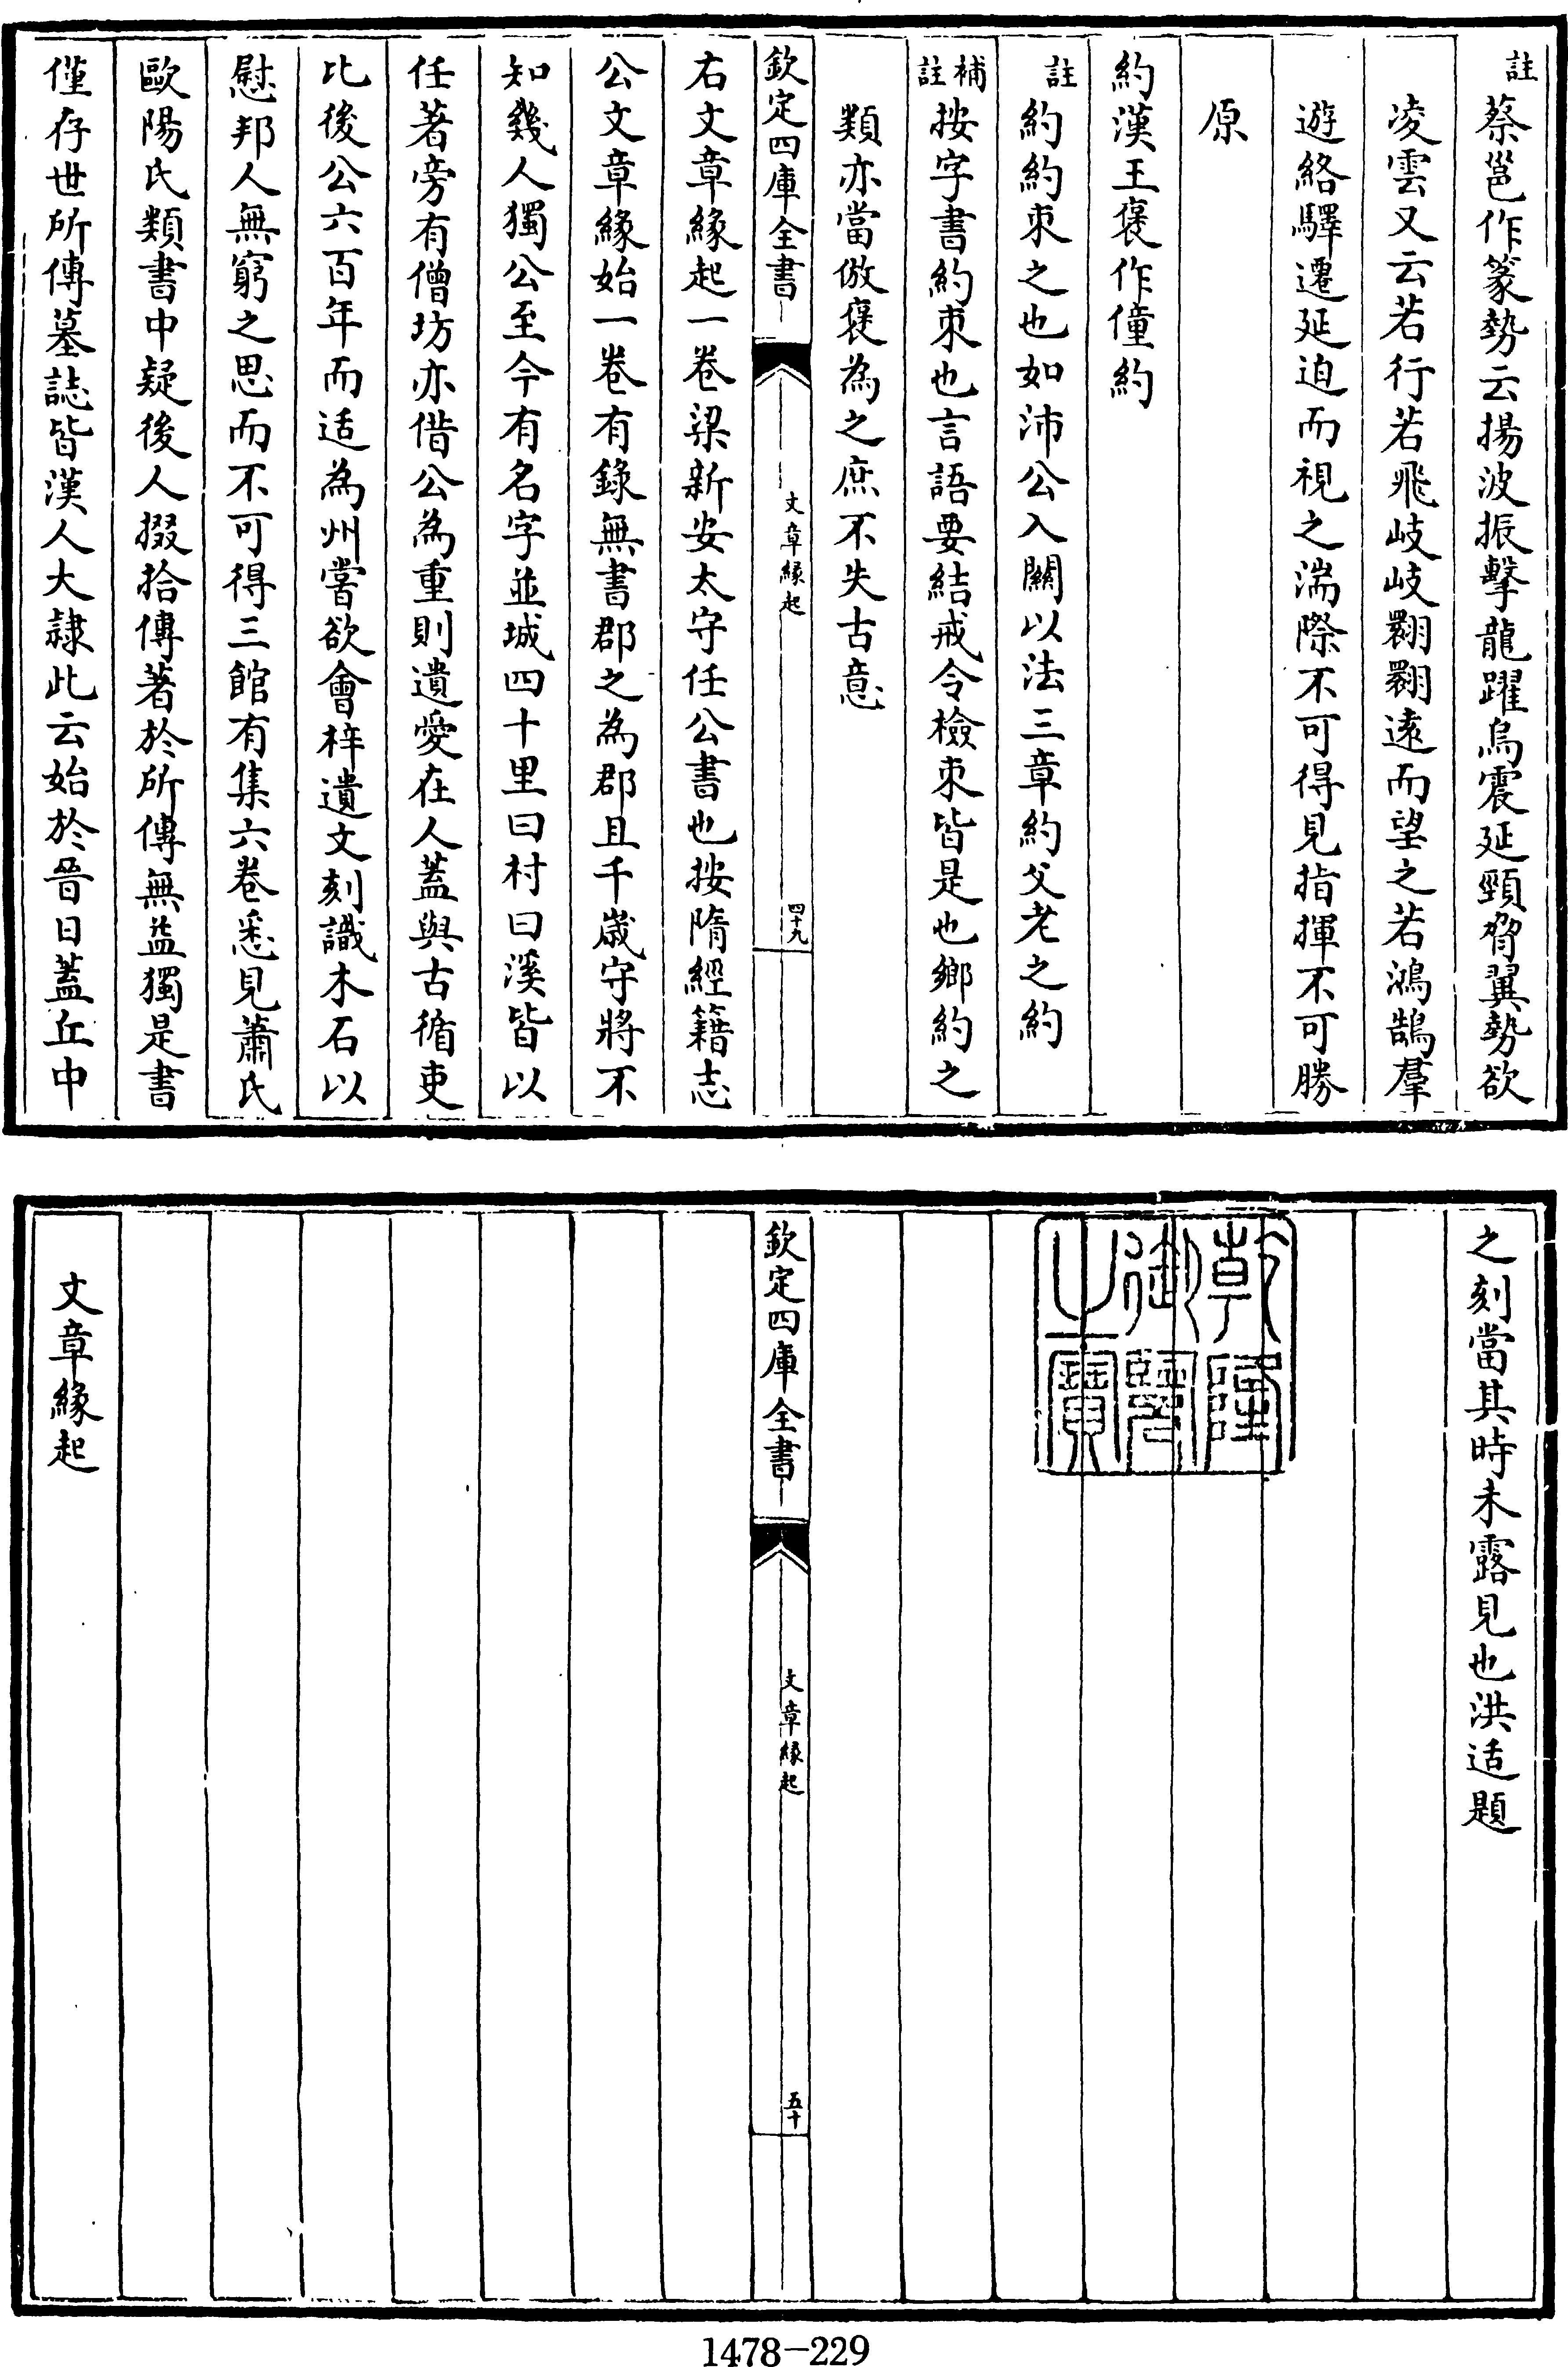 註蔡邕作篆勢云揚波振擊龍躍鳥震延頸脅翼勢欲
凌雲又云若行若飛岐岐翾翾遠而望之若鴻鵠羣
遊絡驛遷延迫而視之湍際不可得見指揮不可勝
原
約漢王褒作僮約
註約約束之也如沛公入關以法三章約父老之約
補註按字書約束也言語要結戒令檢束皆是也鄉約之
類亦當倣褒為之庶不失古意
欽定四庫全書
文章緣起
四十九
右文章緣起一卷梁新安太守任公書也按隋經籍志
公文章緣始一卷有錄無書郡之為郡且千歲守將不
知幾人獨公至今有名字並城四十里曰村曰溪皆以
任著旁有僧坊亦借公為重則遺愛在人蓋與古循吏
比後公六百年而适為州嘗欲會梓遺文刻識木石以
慰邦人無窮之思而不可得三館有集六卷悉見蕭氏
歐陽氏類書中疑後人掇拾傳著於所傳無益獨是書
僅存世所傳墓誌皆漢人大隸此云始於晉日蓋丘中
之刻當其時未露見也洪适題
乾隆御覽之寶
欽定四庫全書
文章緣起
五十
文章緣起
1478-229